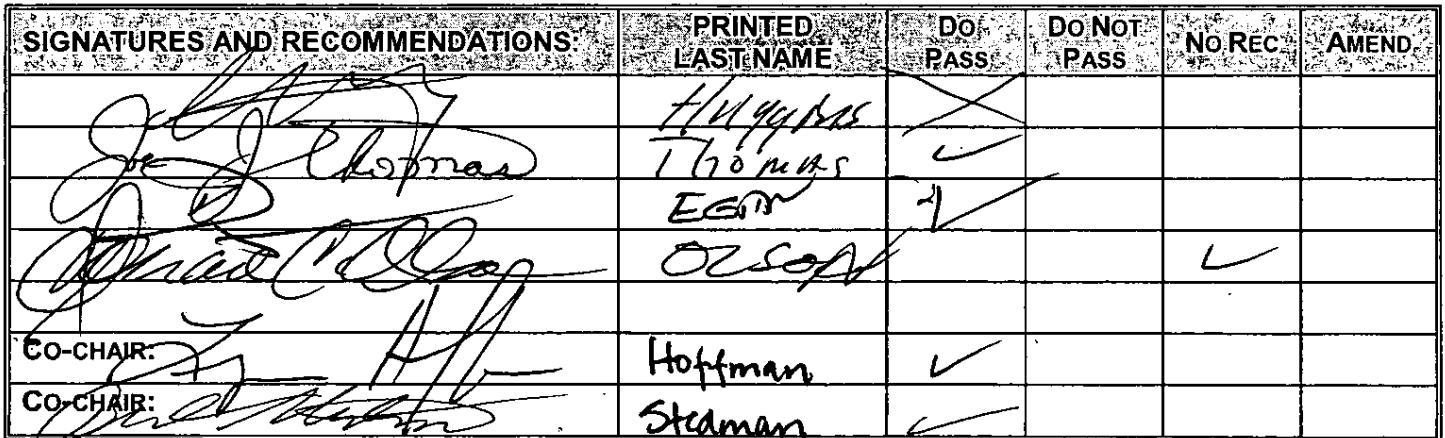 SIGNATURES AND RECOMMENDATIONS: PRINTED LAST NAME DO PASS DO NOT PASS NO REC AMEND
Huggins
Joe J Thomas Thomas ✓
✓
Olson ✓
CO-CHAIR: Hoffman ✓
CO-CHAIR: Stedman ✓